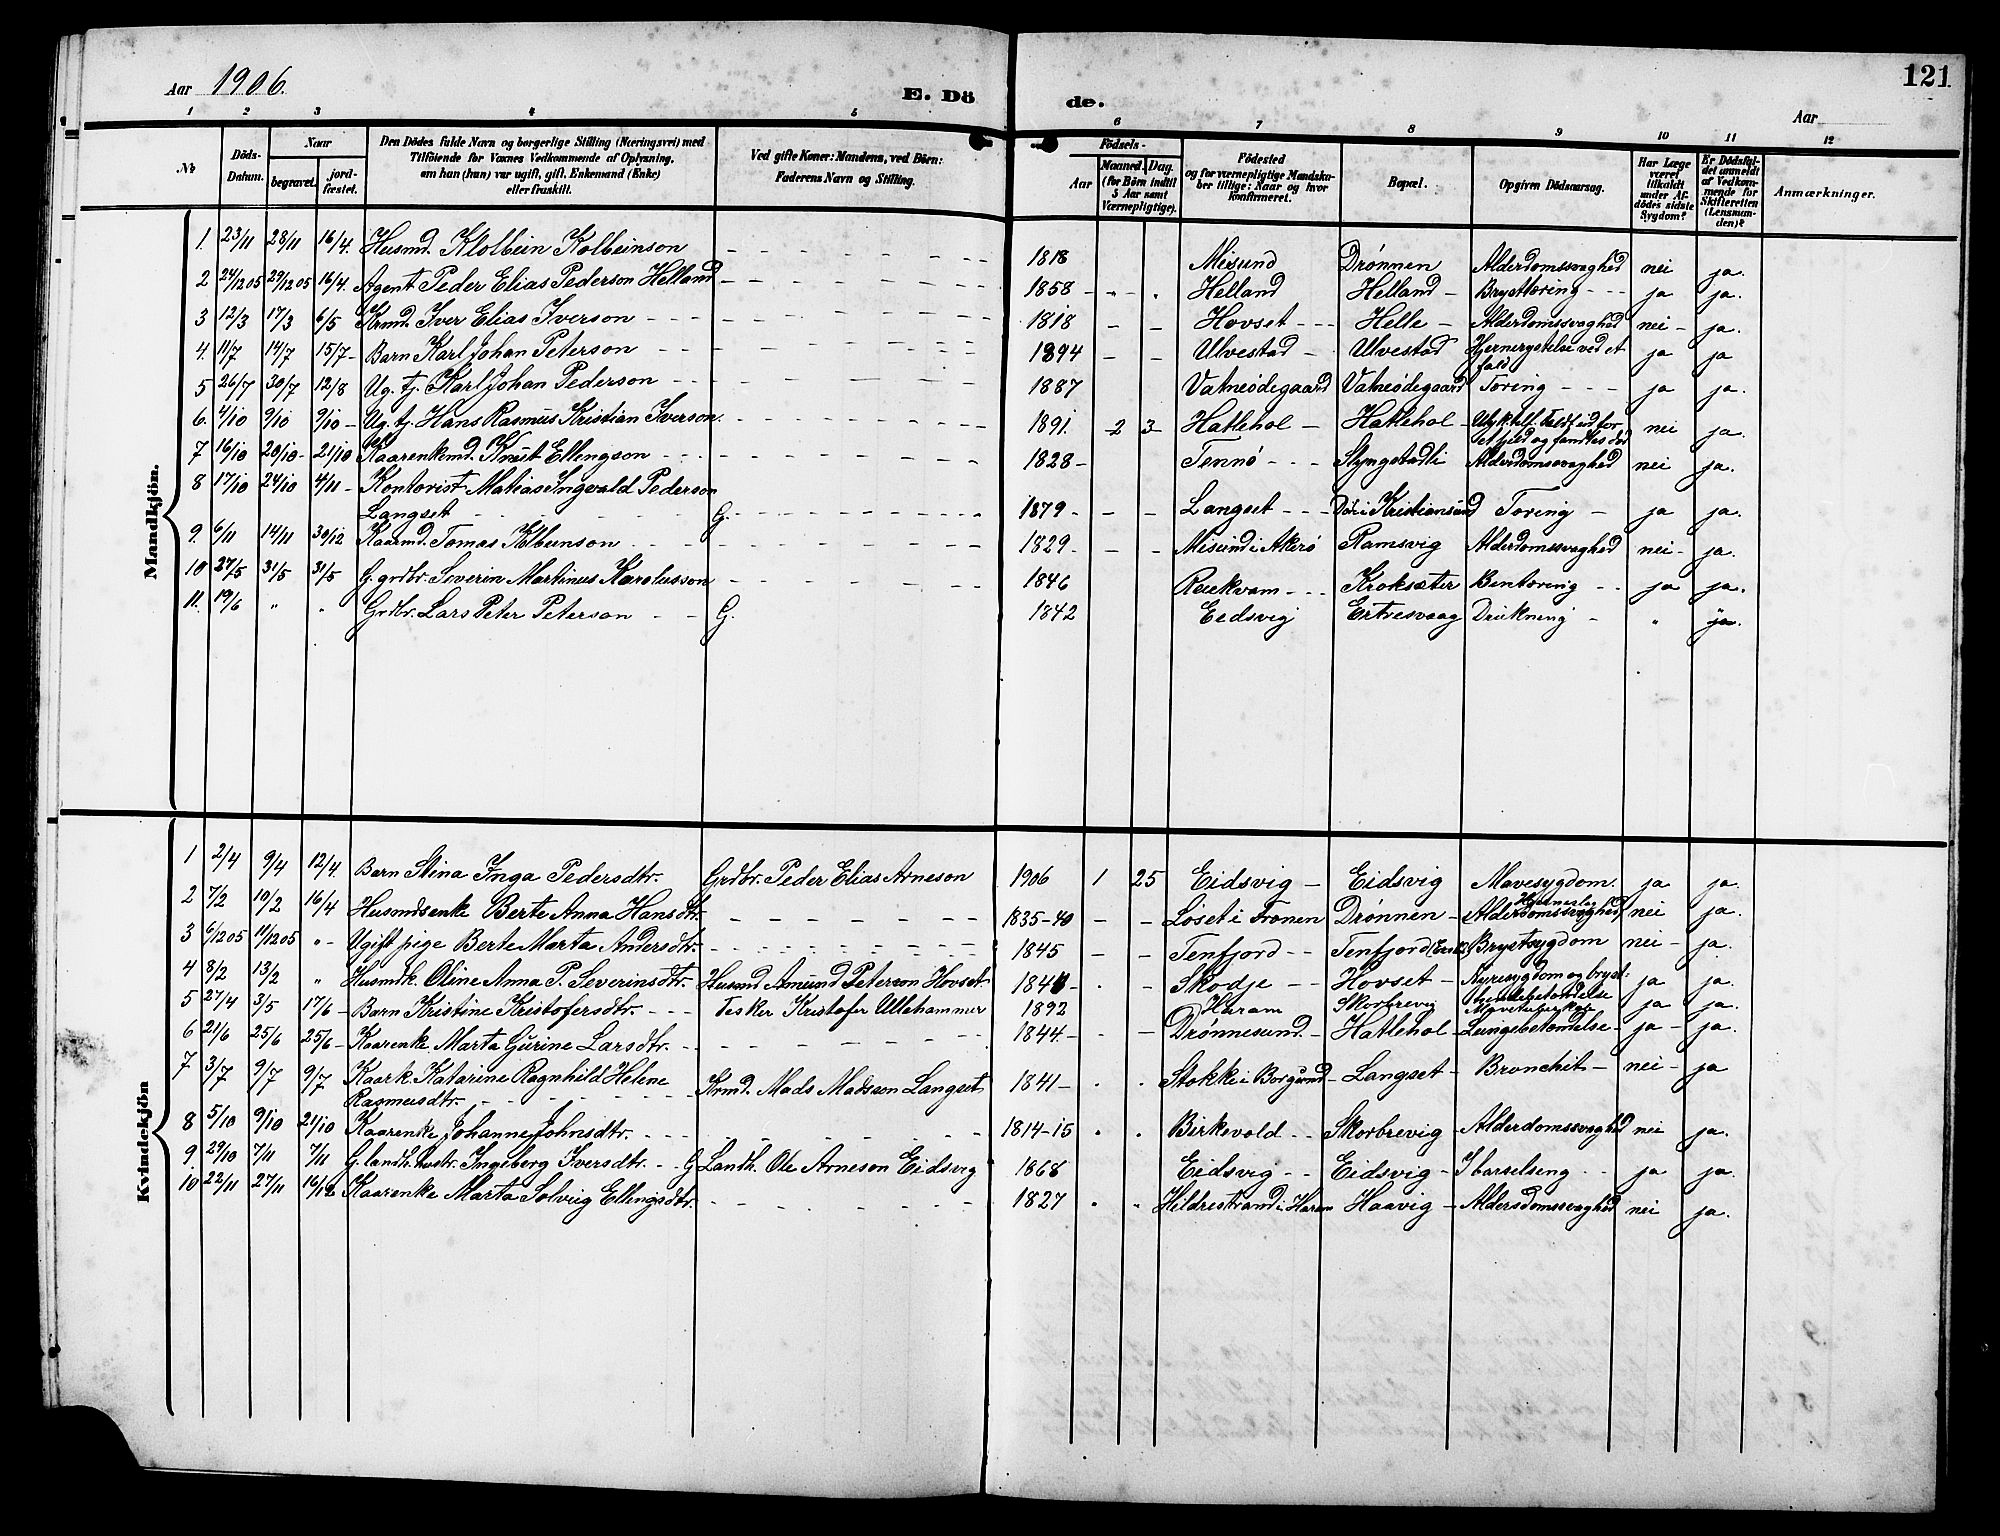 Aar 1906. E. Dö de. Aar 121
1 2 3 4 5 6 7 8 9 10 11 12
No Döds-Datum. Naar begravet. jordfæstet. Den Dödes fulde Navn og borgerlige Stilling (Næringsvei) med Tilföiende for Voxnes Vedkommende af Oplysning, om han (hun) var ugift, gift, Enkemand (Enke) eller fraskilt. Ved gifte Koner: Mandens, ved Börn: Faderens Navn og Stilling. Födsels- Aar Maaned. Dag. (for Börn indtil 5 Aar samt Værnepligtige). Födested og for værnepligtige Mandskaber tillige: Naar og hvor Konfirmeret. Bopæl. Opgiven Dödsaarsag. Har Læge været tilkaldt under Afdödes sidste Sygdom? Er Dödsfaldet anmeldt af Vedkommende for Skifteretten (Lensmanden)? Anmærkninger.
Mandkjön.
1 23/11 28/11 16/4. Husmd. Klolbein Kolbeinson 1818 Misund Drønnen Alderdomssvaghed nei ja.
2 24/12 05 29/12 05 16/4. Agent Peder Elias Pederson Helland 1858 Helland Helland Brysttæring ja ja.
3 12/3 17/3 6/5 Krmd. Iver Elias Iverson 1818 Hovset Helle Alderdomssvaghed nei ja.
4. 11/7 14/7 15/7 Barn Karl Johan Peterson 1894 Ulvestad Ulvestad Hjernerystelse ved et fald ja ja
5 26/7 30/7 12/8 Ug. tj. Karl Johan Pederson 1887 Vatneødegaard Vatneødegaard Tæring ja ja.
6. 4/10 9/10 9/10 Ug. tj. Hans Rasmus Kristian Iverson. 1891. 2 3 Hatlehol Hatlehol Ulyktilf. Faldt ud for et fjeld og fandtes død nei ja.
7 16/10 20/10 21/10 Kaarenkemd. Knut Ellingson 1828 Tennø Slyngstadli Alderdomssvaghed nei ja.
8 17/10 24/10 4/11 Kontorist Matias Ingvald Pederson
Langset G. 1879 Langset Død i Kristiansund Tæring ja ja.
9. 6/11 14/11 30/12 Kaarmd. Tomas Kolbeinson 1829 Misund i Akerø Ramsvig Alderdomssvaghed nei ja.
10 27/5 31/5 31/5 G. grdbr. Severin Martinus Karolusson 1846 Krokseter Bentæring ja ja.
11. 19/6 " " Grdbr. Lars Peter Peterson G. 1842 Eedsvig Ertresvaag Drukning " ja.
Kvindekjön
1 2/4 9/4 12/4. Barn Stina Inga Pedersdtr. Grdbr. Peder Elias Arneson 1906 1 25 Eidsvig Eidsvig Mavesygdom. ja ja.
2 7/2 10/2 16/4 Husmdsenke Berte Anna Hansdtr. 1835-40 Løset i Fronen Drønnen Alderdomssvaghed nei ja.
3 6/12 05 11/12 05 " Ugift pige Berte Marta Andersdtr. 1845 Tenfjord Tenfjord Brystsygdom nei ja.
4 8/2 13/2 " Husmdk. Oline Anna P. Severinsdtr. Husmd Amund Peterson Hovset Skodje Hovset Nyresygdom og bryst- ja ja.
5 27/4 3/5 17/6 Barn Kristine Kristofersdtr. Fisker Kristofer Ullehammer 1892 Haram Skorbrevig Mavetuberkler ja ja.
6 21/6 25/6 25/6 Kaarenke. Marta Gurine Larsdtr. 1844. Drønnesund Hatlehol Lungebetændelse ja ja.
7 3/7 9/7 9/7 Kaark. Katarine Ragnhild Helene
Rasmusdtr. Krmd. Mads Madsson Langset 1841 Stokke i Borgund Langset Bronchit nei ja
8 5/10 9/10 21/10 Kaarenke Johanne Johnsdtr. 1814-15 Birkevold Skorbrevig Alderdomssvaghed nei ja.
9. 29/10 7/11 7/11 G. landh. hustr. Ingeborg Iversdtr. G Landh. Ole Arneson Eidsvig 1868 Eidsvig Eidsvig I barselseng ja ja.
10 22/11 27/11 16/12 Kaarenke Marta Solveig Ellingsdtr. 1827 Hildrestrand i Haram Haavig Aldersdomssvaghed nei ja.